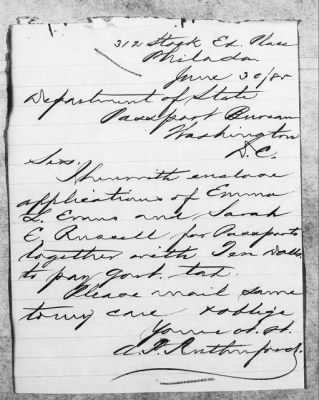 312 Stock Ex. Place
Philada.
June 30/85
Department of State
Passport Bureau
Washington
D.C.
Sirs.
I herewith enclose
applications of Emma
L. Evans and Sarah
E. Russell for Passports
together with Ten Dolls.
to pay Govt. tax.
Please mail same
to my care & oblige
Yours
A. F. Rutherford.